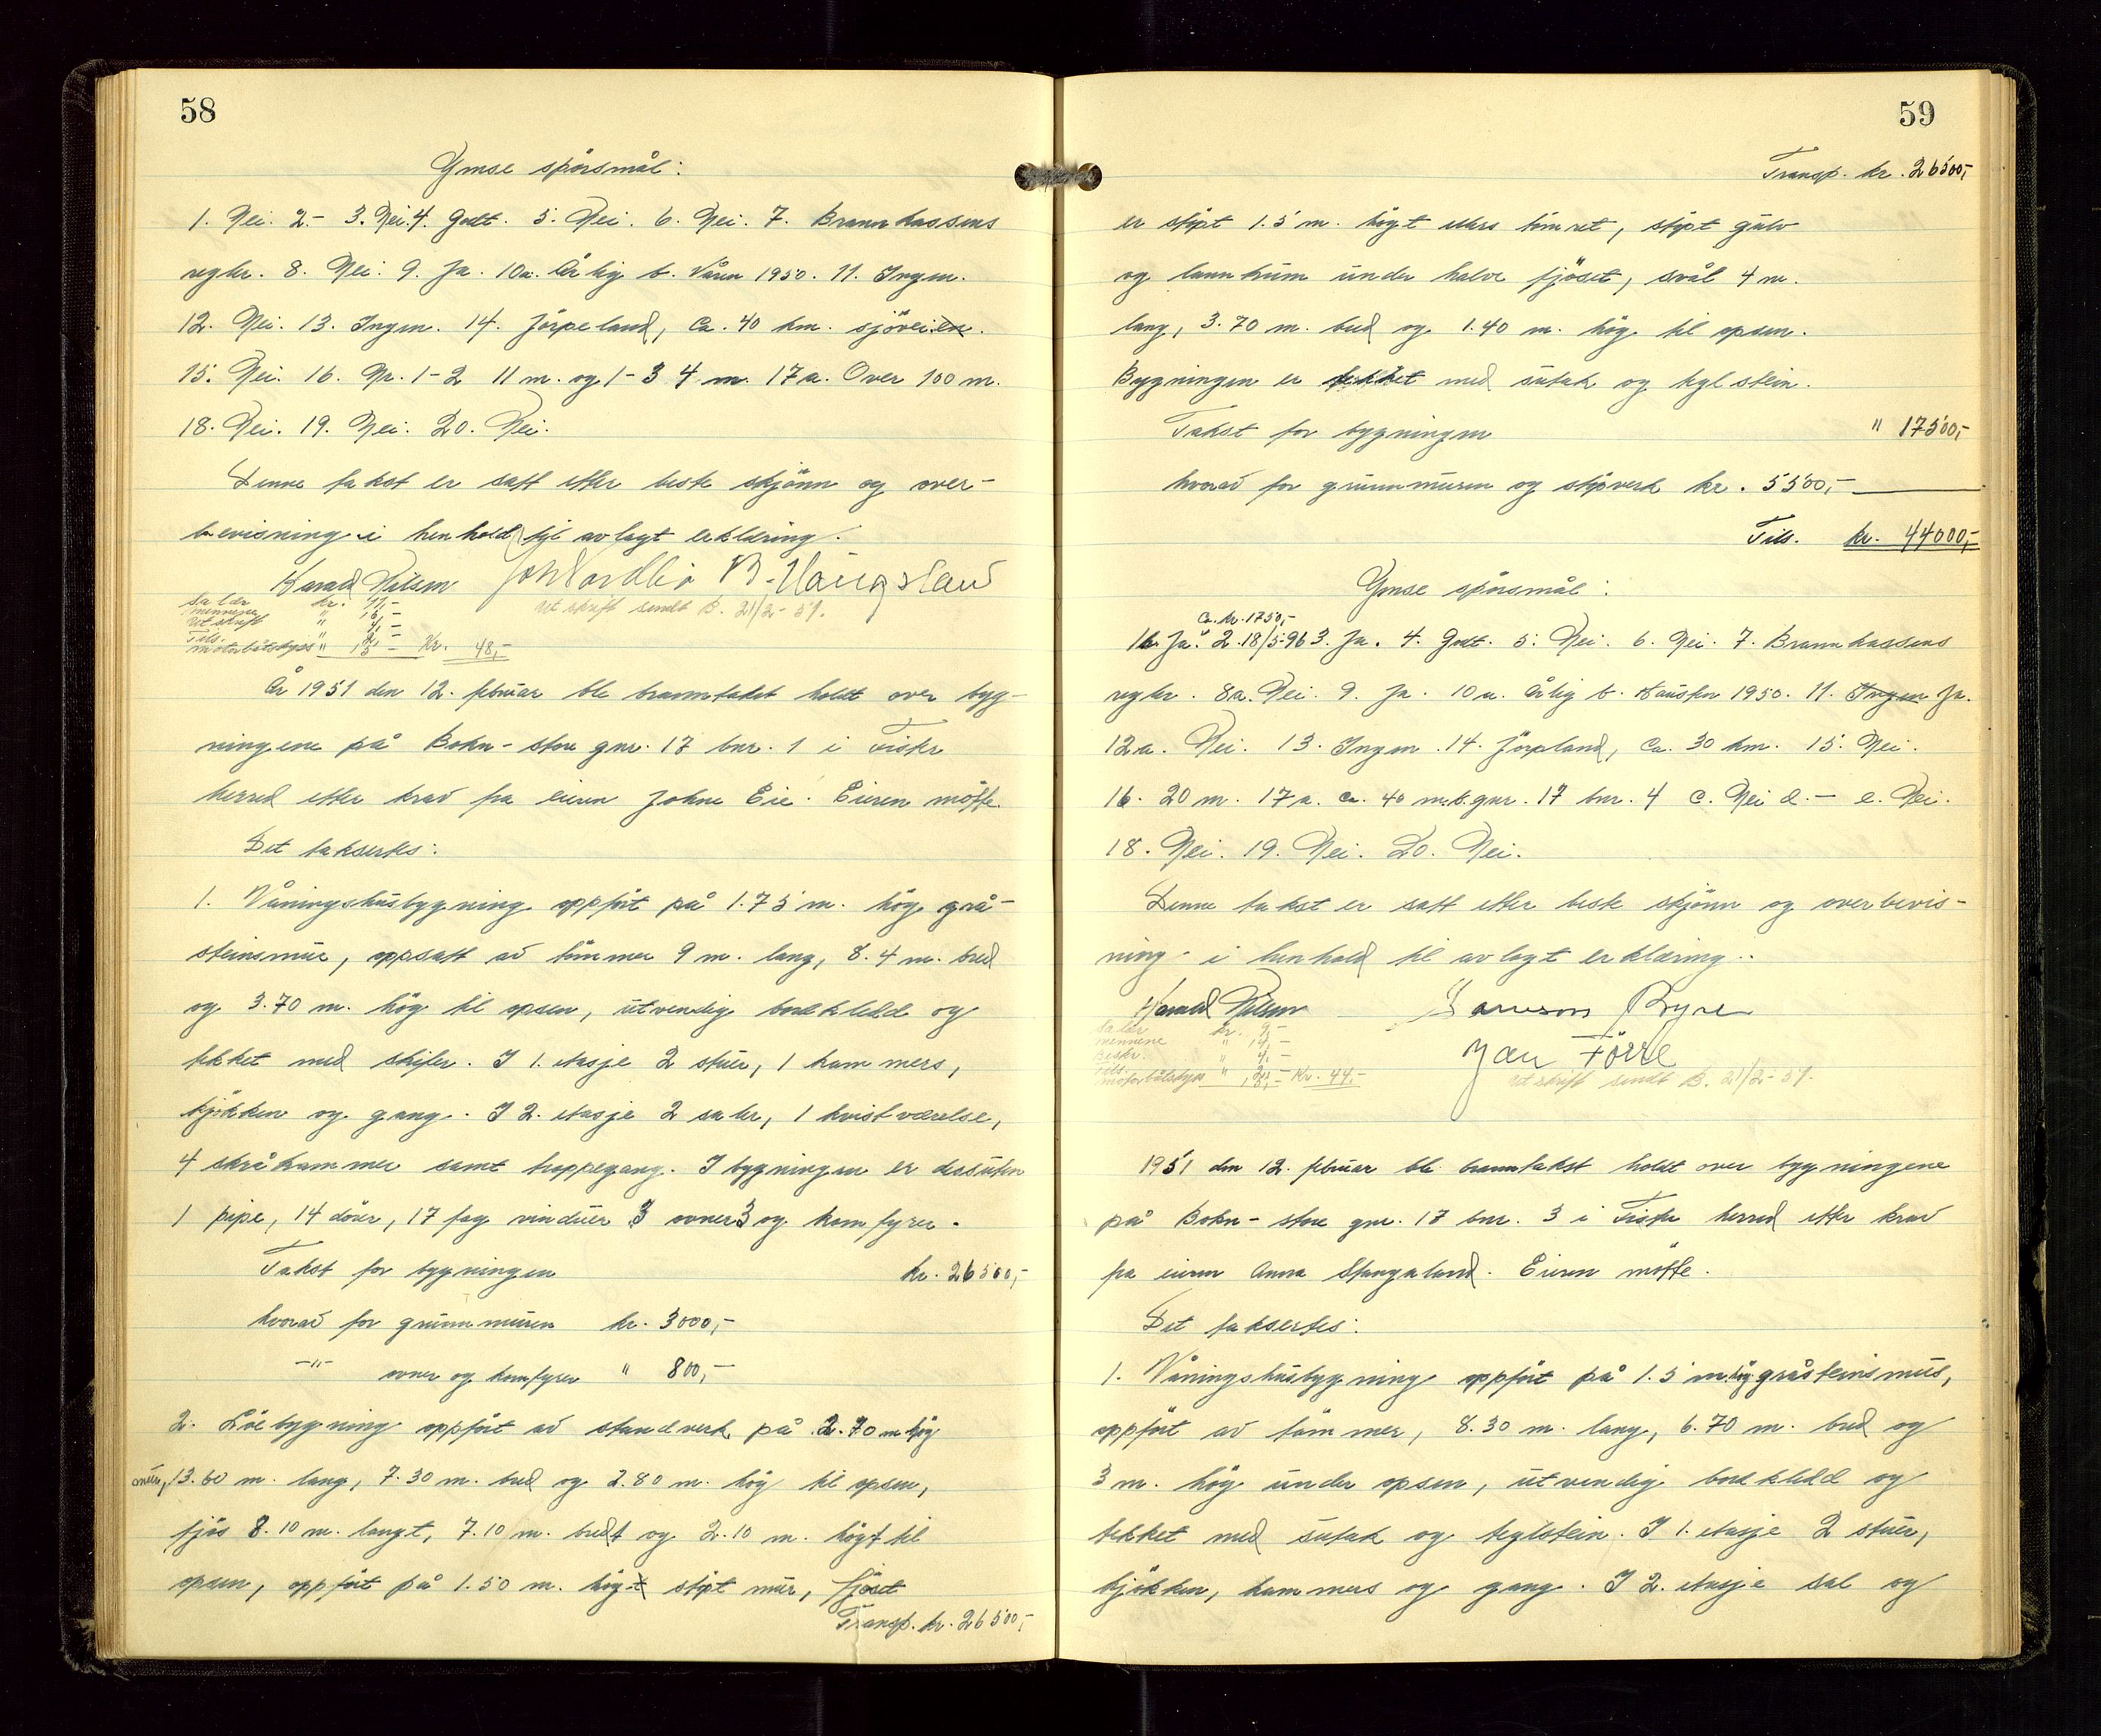 58
Ymse spörsmål:
1. Nei. 2.- 3. Nei. 4. Godt. 5. Nei. 6. Nei. 7. Brannkassens
reglr. 8. Nei. 9. Ja. 10a. Årlig b. Våren 1950. 11. Ingen.
12. Nei. 13. Ingen. 14. Jörpeland, ca. 40 km. sjöveien.
15. Nei. 16. Nr. 1-2 11 m. og 1-3 4 m. 17a. Over 100 m.
18. Nei. 19. Nei. 20. Nei.
Denne takst er satt etter beste skjönn og over-
bevisning i henhold til avlagt erklæring.
Harald Nilsen
Salær kr. 11,-
mennene " 16,-
utskrift " 4,-
Tils.
motorbåtskyss " 15 - Kr. 48,-
utskrift sendt B. 21/2-51.
År 1951 den 12. februar ble branntakst holdt over byg-
ningene på Bokn-store gnr. 17 bnr. 1 i Fister
herred etter krav fra eieren Johne Eie. Eieren mötte.
Det taksertes:
1. Våningshusbygning oppfört på 1.75 m. hög grå-
steinsmur, oppsatt av tömmer 9 m. lang, 8.4 m. bred
og 3.70 m. hög til opsen, utvendig bordkledd og
tekket med skifer. I 1. etasje 2 stuer, 1 kammers,
kjökken og gang. I 2. etasje 2 saler, 1 kvistværelse,
4 skråkammer samt trappegang. I bygningen er dessuten
1 pipe, 14 dörer, 17 fag vinduer 3 ovner 3 og komfyrer.
Takst for bygningen kr. 26500,-
hvorav for grunnmuren kr. 3000,-
-"- ovner og komfyrer " 800,-
2. Löebygning oppfört av standverk på 2.70 m hög
mur, 13.60 m. lang, 7.30 m. bred og 2.80 m. hög til opsen,
fjös 8.10 m. langt, 7.10 m. bredt og 2.10 m. högt til
opsen, oppfört på 1.50 m. högt stöpt mur, fjöset
Transp. kr. 26500,-
59
Transp. kr. 26500,-
er stöpt 1.5 m. högt ellers tömret, stöpt gulv
og landkum under halve fjöset, sval 4 m.
lang, 3.70 m. bred og 1.40 m. hög til opsen.
Bygningen er tekket med sutak og teglstein.
Takst for bygningen " 17500,-
hvorav for grunnmuren og stöpverk kr. 5500,-
Tils. kr. 44000,-
Ymse spörsmål:
Ca. kr. 1750,-
1b. Ja. 2. 18/5-96 3. Ja. 4. Godt. 5. Nei. 6. Nei. 7. Brannkassens
reglr. 8a. Nei. 9. Ja. 10a. Årlig b. Hausten 1950. 11. Ingen Ja.
12a. Nei. 13. Ingen. 14. Jörpland, ca. 30 km. 15. Nei.
16. 20 m. 17a. ca. 40 m. b. gnr. 17 bnr. 4 c. Nei d. - e. Nei.
18. Nei. 19. Nei. 20. Nei.
Denne takst er satt etter beste skjönn og overbevis-
ning i henhold til avlagt erklæring.
Harald Nilsen
Jan Förre
Salær kr. 9,-
mennene " 14,-
Beskr. " 4,-
Tils.
motorbåtskyss " Kr. 44,-
utskrift sendt B. 21/2-51.
1951 den 12. februar ble branntakst holdt over bygningene
på Bokn-store gnr. 17 bnr. 3 i Fister herred etter krav
fra eieren Anna Stangaland. Eieren mötte.
Det taksertes:
1. Våningshusbygning oppfört på 1.5 m. hög gråsteinsmur,
oppfört av tömmer, 8.30 m. lang, 6.70 m. bred og
3 m. hög under opsen, utvendig bordkledd og
tekket med sutak og teglstein. I 1. etasje 2 stuer,
kjökken, kammers og gang. I 2. etasje sal og